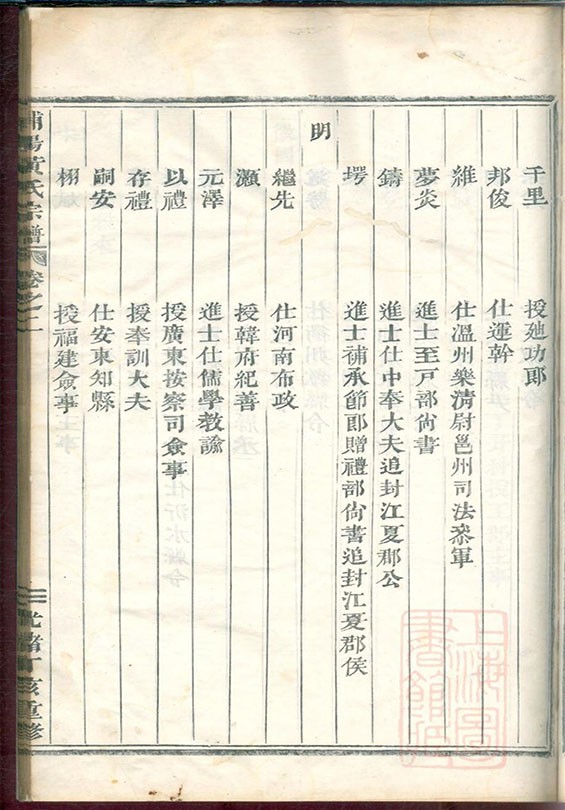 千里 授廸功郎
邦俊 仕運幹
維 仕溫州樂清尉邕州司法叅軍
夢炎 進士至戸部尙書
鑄 進士仕中奉大夫追封江夏郡公
堮 進士補承節郎贈禮部尙書追封江夏郡侯
明
繼先 仕河南布政
灝 授韓府紀善
元澤 進士仕儒學教諭
以禮 授廣東按察司僉事
存禮 授奉訓大夫
嗣安 仕安東知縣
栩 授福建僉事
浦陽黃氏宗譜 卷之二 光緒丁亥重修
上海圖書館藏